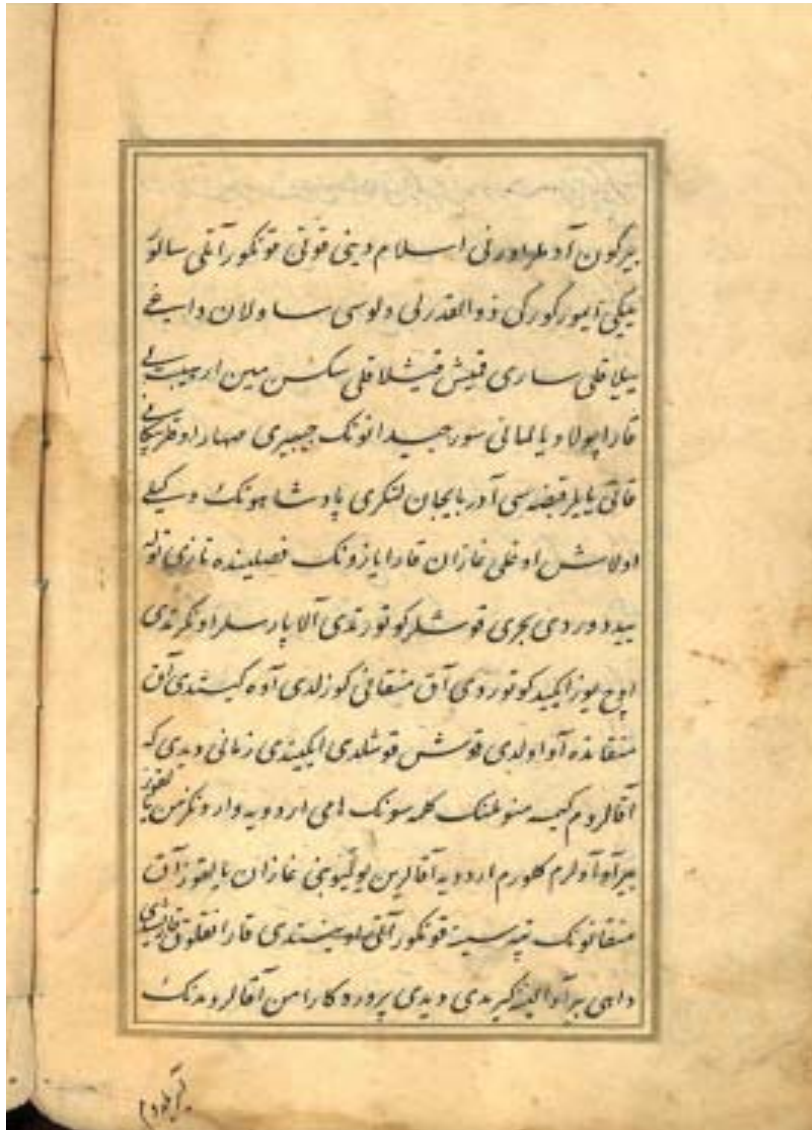 بیر کون آدملر اورنی اسلام دینی قوتی قونکور آتلی سالور
بیکی ایمور کورکی ذوالقدرلی دلوسی ساولان داغی
ییلاقلی ساری قمیش قیشلاقلی سکسن مین ار
قارا پولاد یالمانی سور جیدانونک جبیری
قاتی یایلر قبضه سی آدربایجان لشکری پادشاهونک وکیلی
اولاش اوغلی غازان قارا یازونک فصلینده تازی توله
ییددوردی بحری قوشلر کوتورتدی آلا پارسلر اونکرتدی
اوچ یوز ایکید کوتوردی آق منقانی کوزلدی آوه کیتدی آق
منقانده آو اولدی قوش قوشلدی ایکیندی زمانی دیدی که
آقالروم کیمسه منوملنک کلمه سونک هامی اردویه وارونکز من یالقوز
بیر آو آولرم کلورم اردویه آقالرین یولیوبنی غازان یالقوز آق
منقانونک تپه سینه قونکور آتلی چیتدی قارانقلوق
داهی بیر آو الینه کیرمدی دیدی پروردکارا من آقالرومدنک